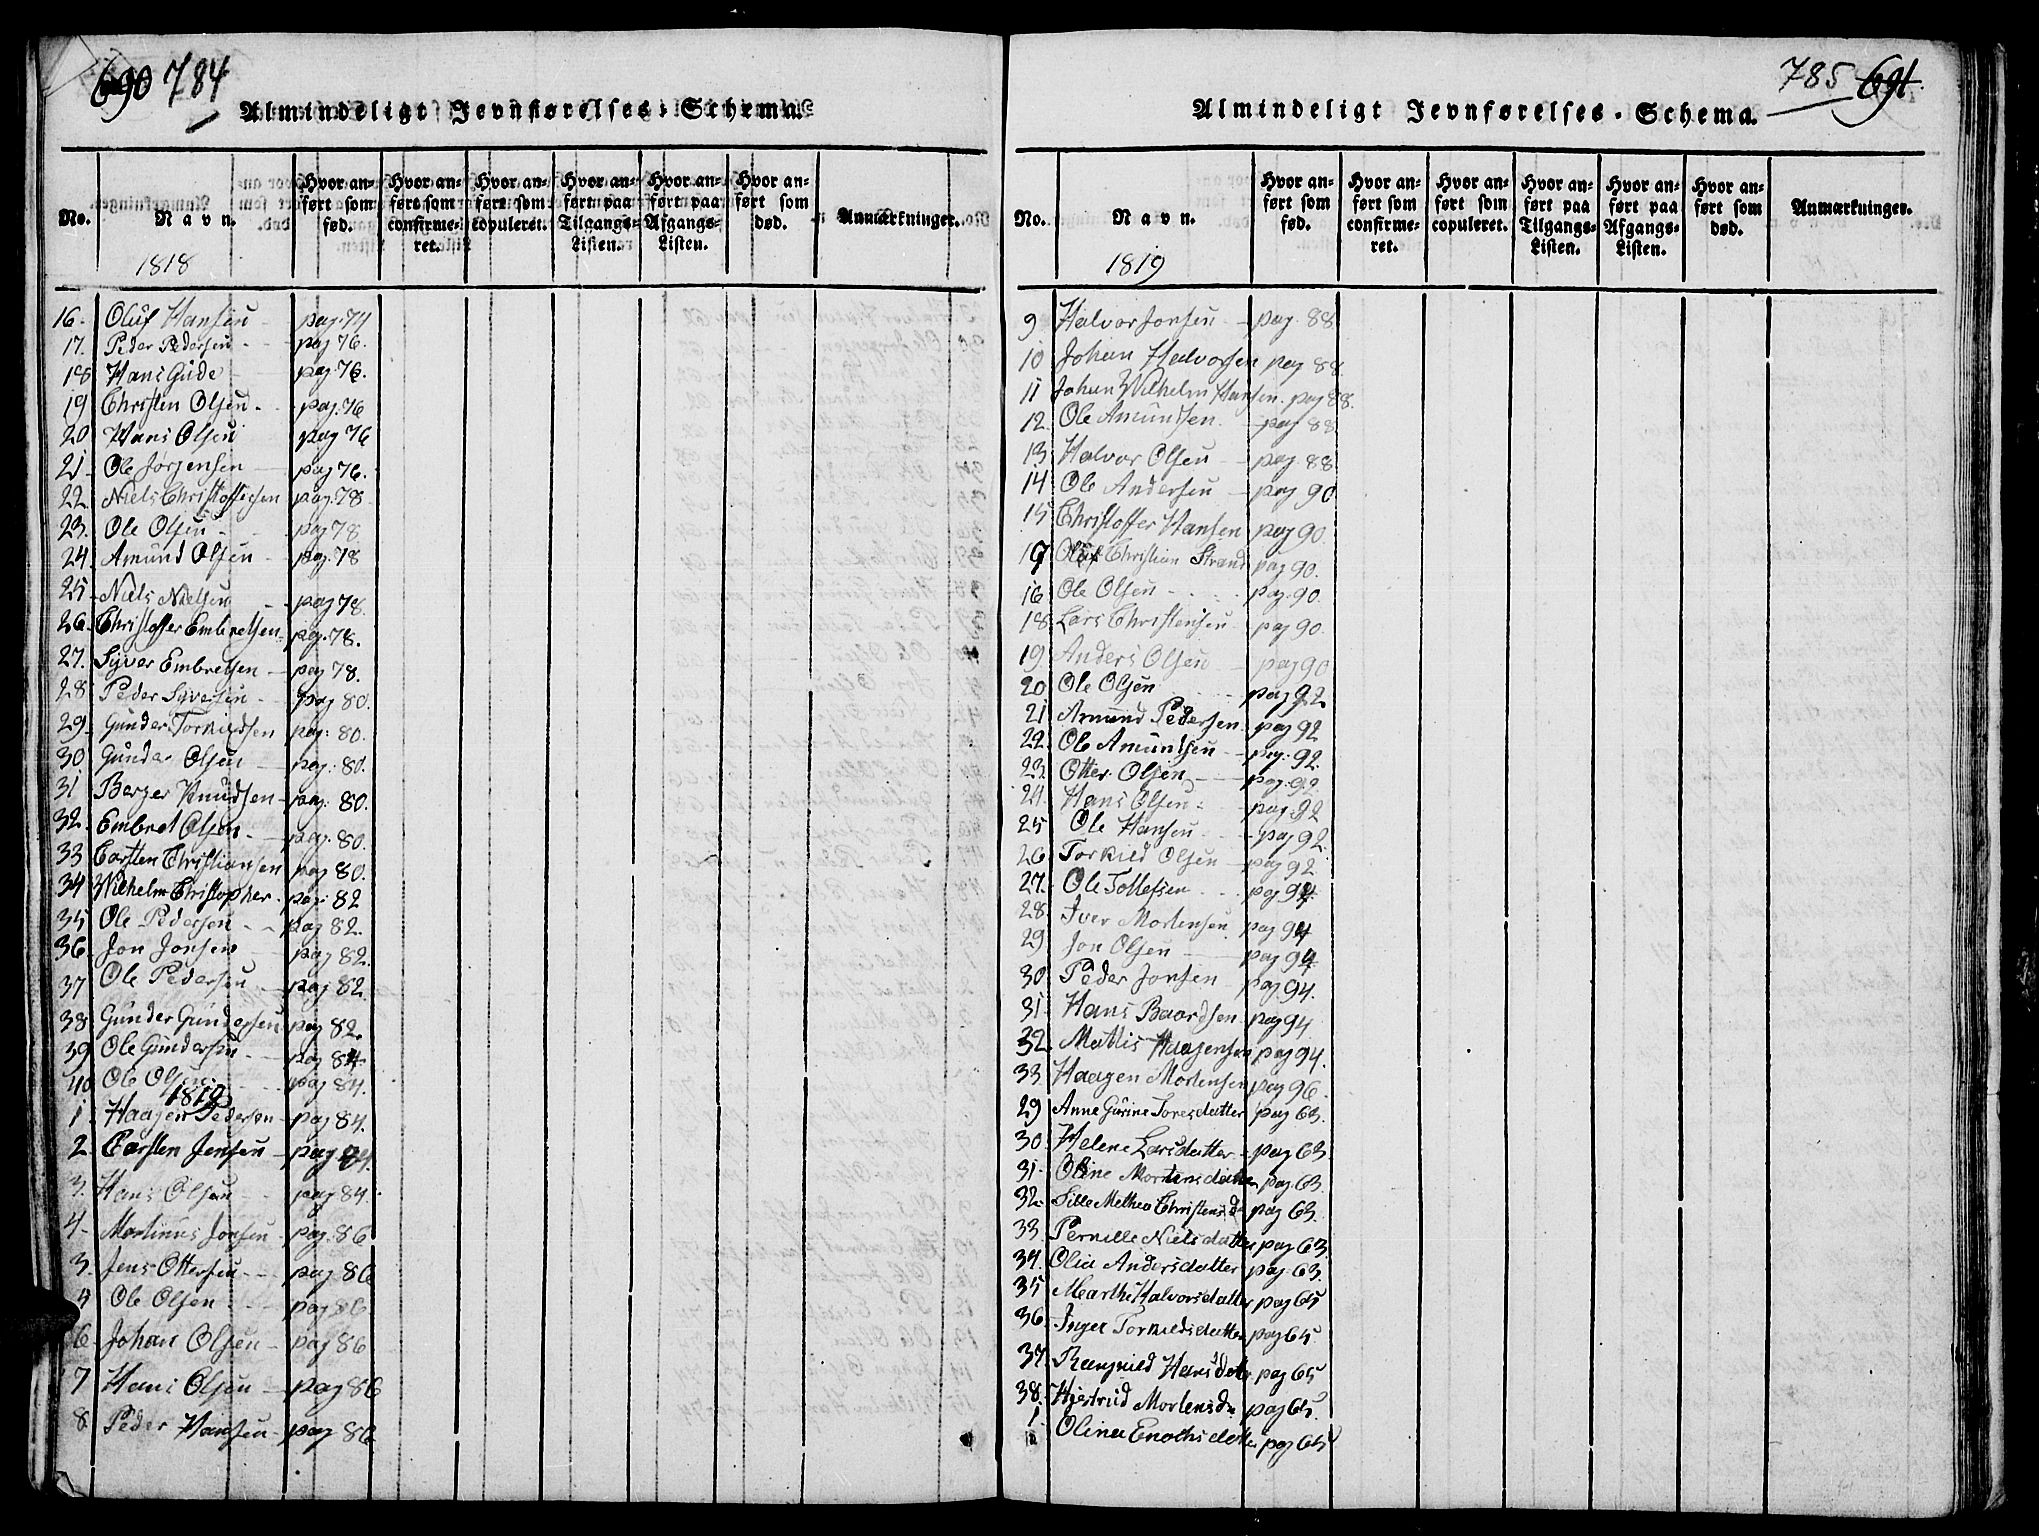 690 784
Almindeligt Jevnførelses-Schema.
No. Navn. Hvor anført som fød. Hvor anført som confirmeret. Hvor anført som copuleret. Hvor anført paa Tilgangs-Listen. Hvor anført paa Afgangs-Listen. Hvor anført som død. Anmærkninger.
1818
16. Oluf Hansen pag. 74
17. Peder Pedersen pag 76.
18 Hans Gude pag. 76.
19 Christen Olsen pag. 76
20 Hans Olsen pag 76
21. Ole Jørgensen pag 76.
22. Niels Christoffersen pag. 78
23. Ole Olsen pag 78
24. Amund Olsen pag. 78
25. Niels Nielsen pag 78.
26. Christoffer Embretsen pag. 78.
27. Syver Embretsen pag 78.
28. Peder Syversen pag 80.
29. Gunder Torkildsen pag: 80.
30 Gunder Olsen pag: 80.
31 Berger Knudsen pag: 80.
32. Embret Olsen pag: 80.
33 Carsten Christiansen pag 80.
34 Wilhelm Christopher pag: 82
35 Ole Pedersen pag 82.
36. Jon Jonsen pag 82.
37 Ole Pedersen pag 82.
38 Gunder Gundersen pag 82.
39 Ole Gundersen pag 84.
40. Ole Olsen pag 84.
1819
1. Haagen Pedersen pag 84.
2. Carsten Jensen pag 84.
3. Hans Olsen pag 84.
4. Martinus Jonsen pag. 86
3. Jens Ottersen pag 86
4 Ole Olsen pag 86
6 Johan Olsen pag 86
7 Hans Olsen pag 86
8. Peder Hansen pag 86
785 691.
Almindeligt Jevnførelses-Schema.
No. Navn. Hvor anført som fød. Hvor anført som confirmeret. Hvor anført som copuleret. Hvor anført paa Tilgangs-Listen. Hvor anført paa Afgangs-Listen. Hvor anført som død. Anmærkninger.
1819
9 Halvor Jonsen pag. 88
10 Johan Halvorsen pag 88
11 Johan Wilhelm Hansen. pag 88.
12. Ole Amundsen. pag 88
13. Halvor Olsen pag. 88
14 Ole Andersen pag 90
15 Christoffer Hansen pag 90.
17 Oluf Christian Strand pag 90.
16 Ole Olsen pag. 90.
18. Lars Christensen pag 90.
19. Anders Olsen pag 90
20 Ole Olsen pag 92
21 Amund Pedersen pag 92
22. Ole Amundsen pag. 92.
23. Otter Olsen pag. 92.
24. Hans Olsen pag. 92
25 Ole Hansen pag 92.
26 Torkild Olsen pag 92
27. Ole Tollefsen pag 94.
28. Iver Mortensen pag 94
29 Jon Olsen pag 94
30. Peder Jonsen pag. 94.
31. Hans Baardsen pag 94
32. Mattis Haagensen pag 94.
33. Haagen Mortensen pag 96.
29 Anne Gurine Toresdatter pag 63.
30. Helene Larsdatter pag 63
31. Oline Mortensdatter pag. 63.
32. Sille Mathea Christens d. pag 63.
33. Pernille Nielsdatter pag 63.
34. Olia Andersdatter pag. 63.
35 Marthe Halvorsdatter pag 65
36. Inger Torkildsdatter pag 65
37. Rangnild Hansdatr pag 65
38. Hjertrud Mortensdr pag 65.
1. Olinea Enochsdatter pag 65